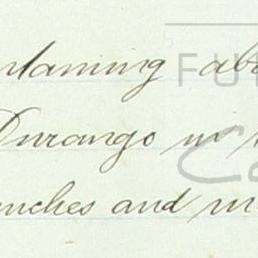 ntaining abo
Durango in
nches and m